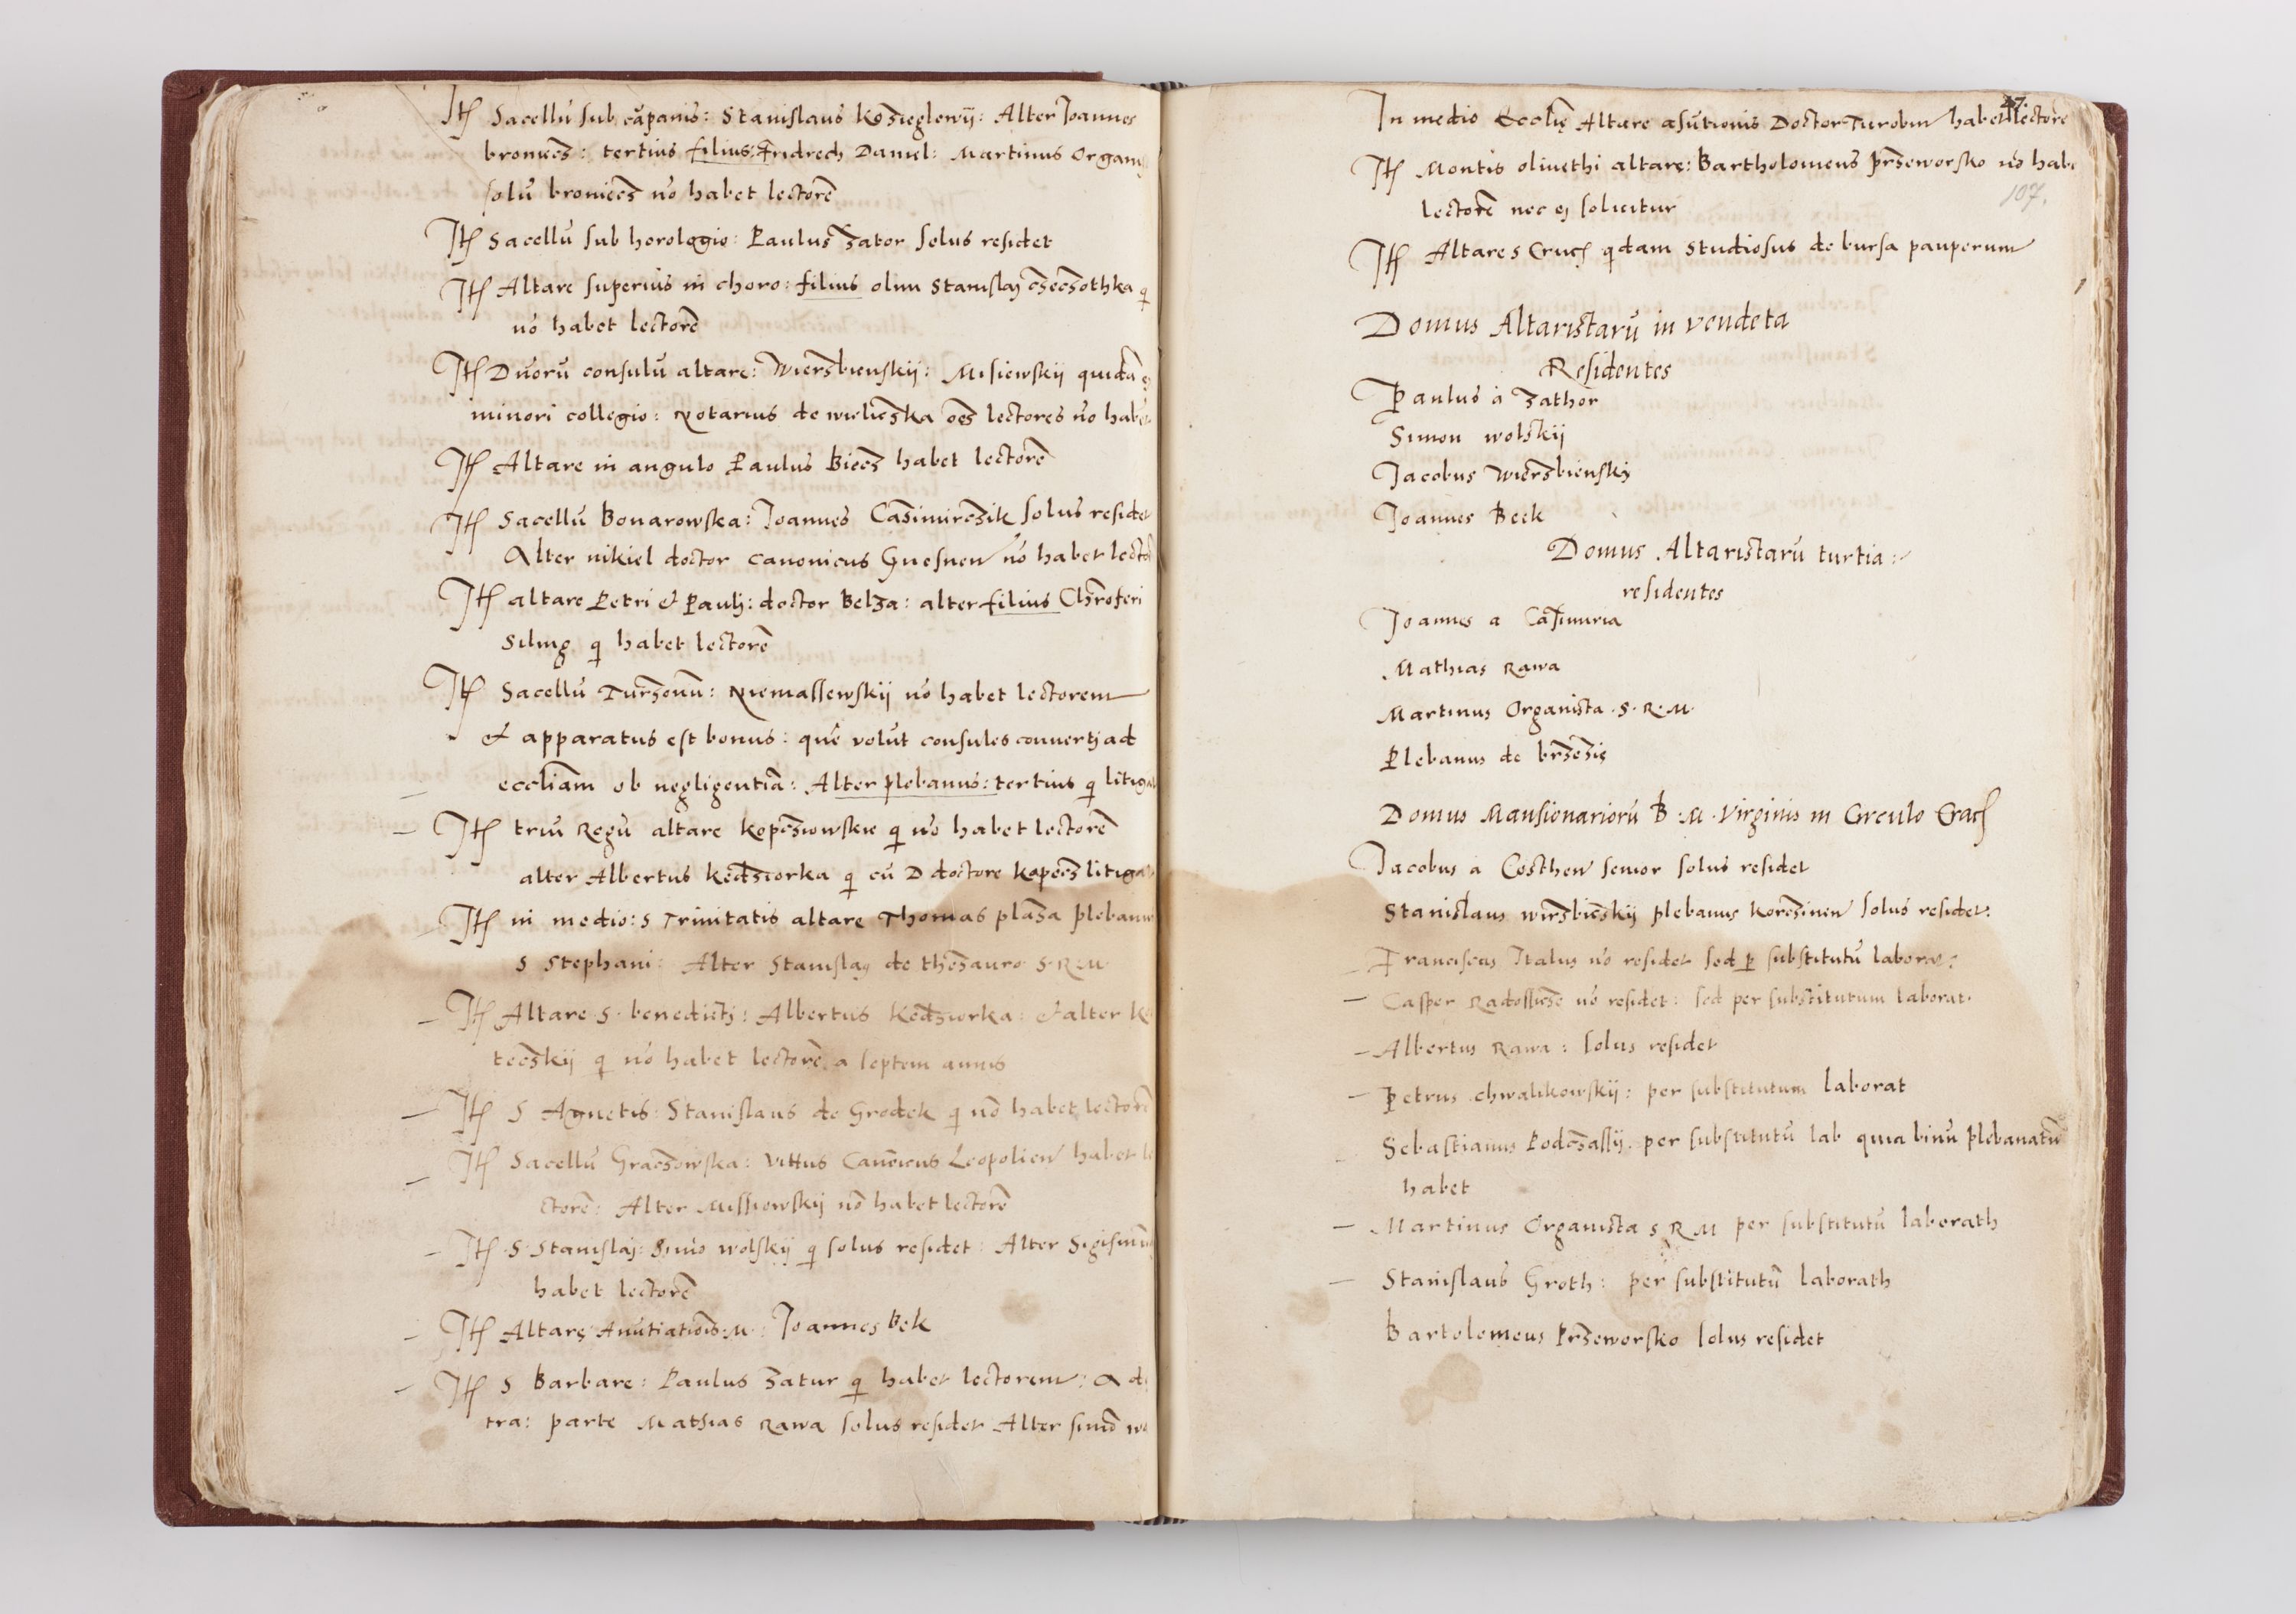 Itē Sacellū sub cāpanis: Stanislaus Koziegłowij: Alter Joannes
broniecz: tertius filius Fridrech Daniel: Martinus Organis
solū broniecz nō habet lectorē
Itē Sacellū sub horologio: Paulus Zator solus residet
Itē Altare superius in choro: filius olim Stanislaj Czeczothka q
nō habet lectorē
Itē Duorū consulū altare: Wierzbienskij: Misiewskij quidā
minori collegio: Notarius de wieliczka oēs lectores nō habet
Itē Altare in angulo Paulus Biecz habet lectorē
Itē Sacellū Bonarowska: Joannes Casimirczik solus residet
Alter nikiel doctor canonicus Gnesnen nō habet lecto
Itē altare Petri & Pauli: doctor Belza: alter filius Chrōferi
Siling q habet lectorē
Itē Sacellū Turzonū: Niemassewskij nō habet lectorem
& apparatus est bonus: quē volūt consules conuerti ad
eccliam ob negligentiā: Alter plebanus: tertius q litiga
Itē triū Regū altare kopcziowskie q nō habet lectorē
alter Albertus kedziorka q cū D doctore kopecz litiga
Itē in medio: S Trinitatis altare Thomas plaza plebanus
S Stephani: Alter Stanislaq de thezauro S R M
Itē Altare S. benedicti: Albertus kedziorka: & alter k
teczkij q nō habet lectorē a septem annis
Itē S Agnetis: Stanislaus de Grodek q nō habet lectorē
Itē Sacellū Graczowska: Vittus Canōicus Leopolien habet le
ctorē: Alter Missiowskij nō habet lectorē
Itē S. Stanislaj: Simō wolskij q solus residet: Alter Sigismū
habet lectorē
Itē Altare Anūtiatiōis: M: Joannes Bek
Itē S Barbare: Paulus Zatur q habet lectorem: A de
tra: parte Mathias Rawa solus residet Alter simō wo
47.
In medio Ecclię Altare asūtionis Doctor Turobin habet lectorē
Itē Montis oliuethi altare: Bartholomeus przeworsko nō habe
107.
lectorē nec ej solicitur
Itē Altare S Crucę qdam studiosus de bursa pauperum
Domus Altaristarū in vendeta
Residentes
Paulus a Zathor
Simon wolskij
Jacobus Wierzbienskj
Joannes Beek
Domus Altaristarū turtia:
residentes
Joannes a Casimiria
Mathias Rawa
Martinus Organista. S. R. M.
Plebanus de brzezie
Domus Mansionariorū B. M. Virginis in Circulo Crac
Jacobus a Costhen senior solus residet
Stanislaus wirzbieskij plebanus korczinen solus residet:
Franciscus Italus nō residet sed p substitutū laborat:
Casper Radossicze nō residet: sed per substitutum laborat.
Albertus Rawa: solus residet
Petrus chwalikowskij: per substitutum laborat
Sebastianus Podczassij. per substitutū lab quia binū plebanatū
habet
Martinus Organista S R M per substitutū laborath
Stanislaus Groth: per substitutū laborath
Bartolomeus Przeworsko solus residet